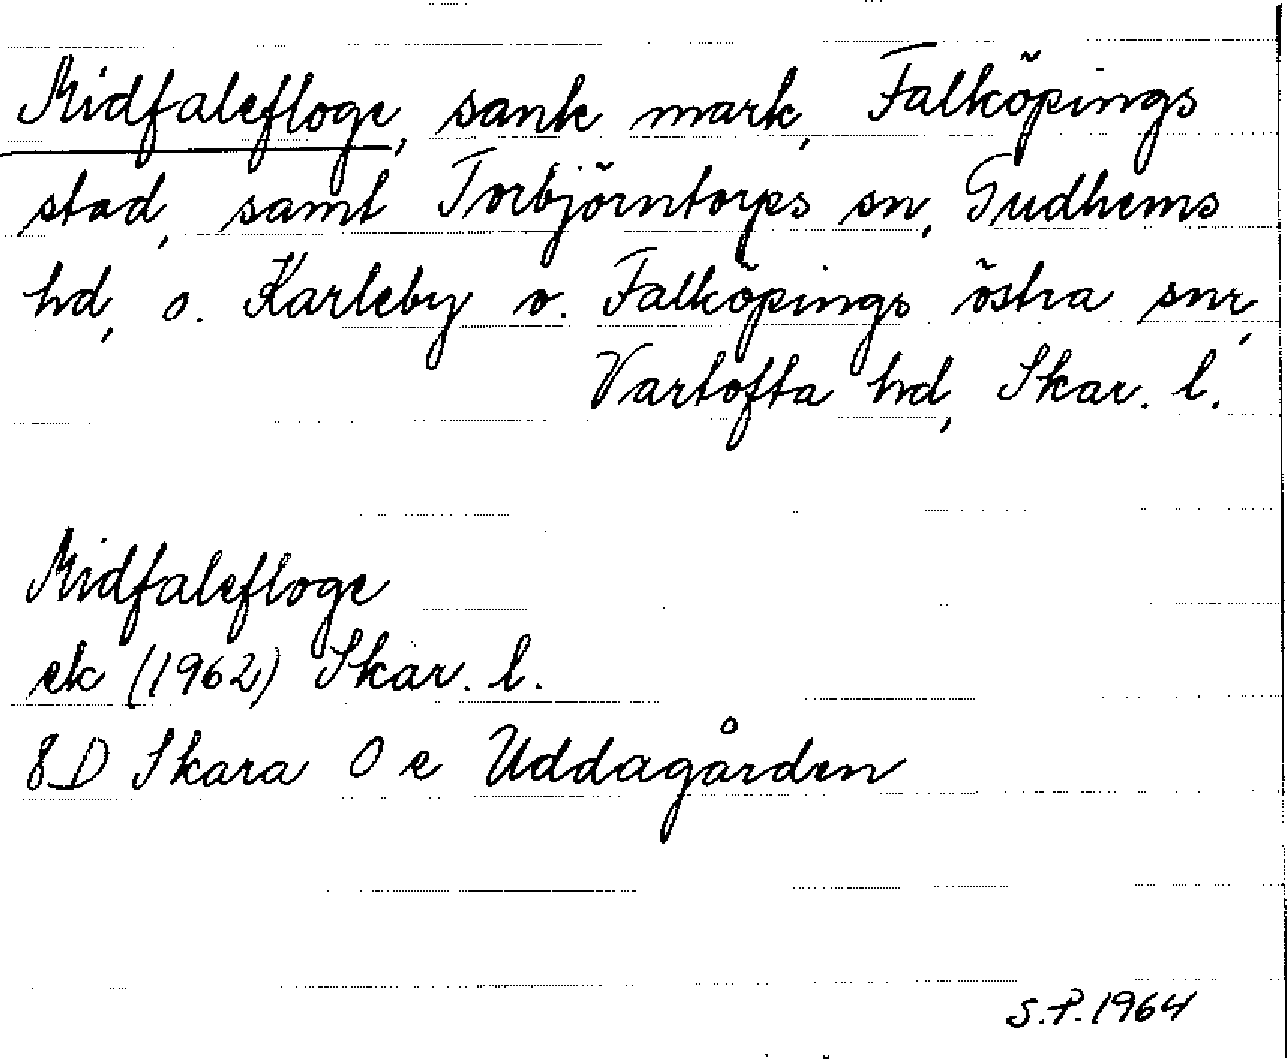 Midfalefloge, sank mark, Falköpings
stad, samt Torbjörntorps sn, Gudhems
hd, o. Karleby o. Falköpings östra snr,
Vartofta hd, Skar. l.
Midfalefloge
ek (1962) Skar. l.
8D Skara 0 e Uddagården
S.P. 1964